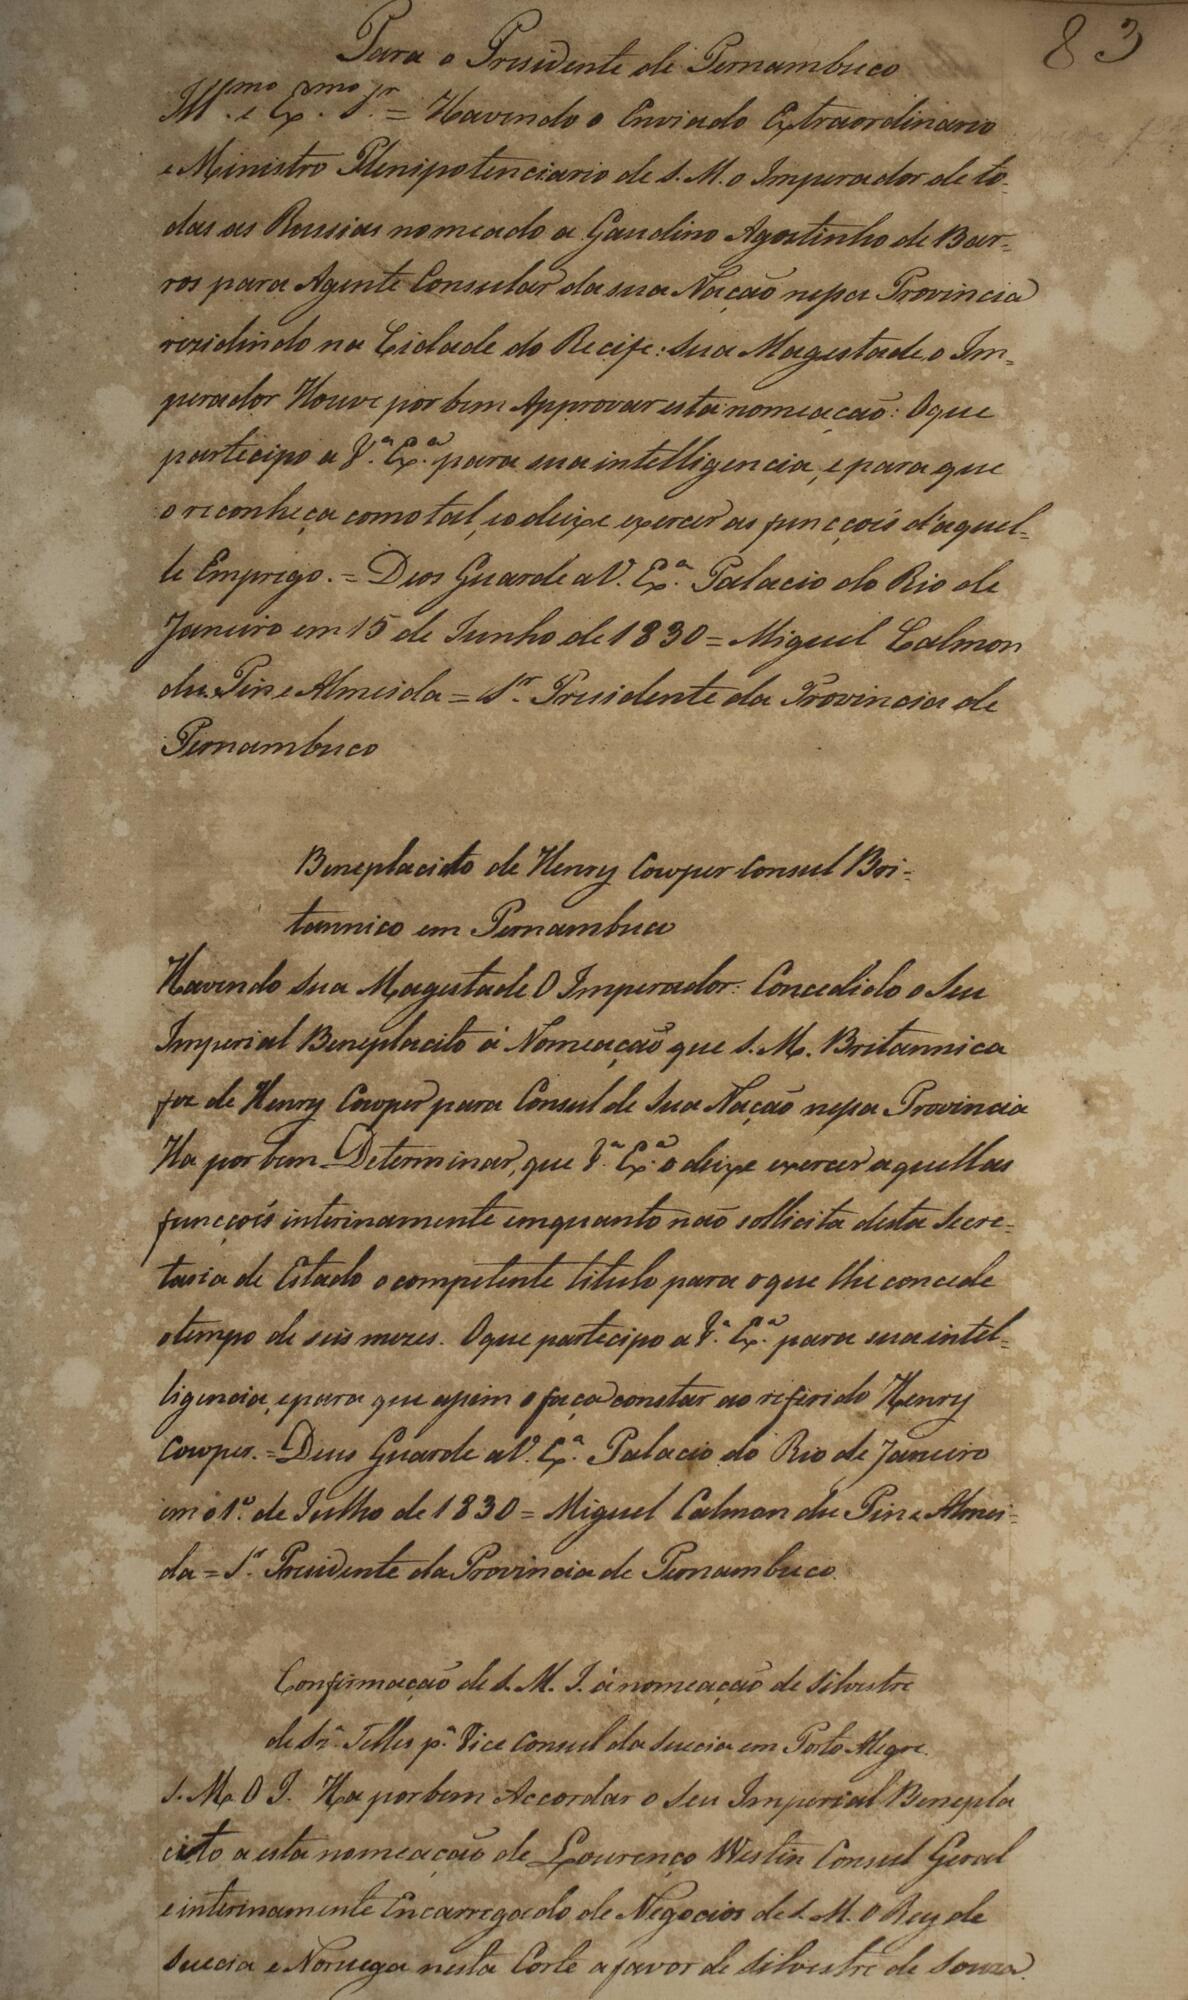 83
Para o Presidente de Pernambuco
Ill.mo e Ex.mo Sr. = Havendo o Enviado Extraordinario
e Ministro Plenipotenciario de S. M. o Imperador de to-
das as Russias nomeado a Gaudino Agostinho de Bar-
ros para Agente Consular da sua Nação nessa Provincia
rezidindo na Cidade do Recife: Sua Magestade o Im-
perador Houve por bem Approvar esta nomeação: O que
participo a V.ª Ex.ª para sua intelligencia, e para que
o reconheça como tal, e o deixe exercer as funcçoīs d'aquel-
le Emprego. = Deos Guarde a V. Ex.ª Palacio do Rio de
Janeiro em 15 de Junho de 1830 = Miguel Calmon
du Pin e Almeida = Sr. Presidente da Provincia de
Pernambuco
Beneplacito de Henry Cowper Consul Bri-
tannico em Pernambuco
Havendo Sua Magestade O Imperador: Concedido o Seu
Imperial Beneplacito á Nomeação que S. M. Britannica
fez de Henry Cowper para Consul de Sua Nação nessa Provincia
Ha por bem Determinar, que V.ª Ex.ª o deixe exercer aquellas
funcçoīs interinamente emquanto não sollicita desta Secre-
taria de Estado o competente titulo para o que lhe concede
o tempo de seis mezes. O que participo a V.ª Ex.ª para sua intel-
ligencia, e para que assim o faça constar ao referido Henry
Cowper. = Deus Guarde a V. Ex.ª Palacio do Rio de Janeiro
em o 1.º de Julho de 1830 = Miguel Calmon du Pin e Almei-
da = Sr. Presidente da Provincia de Pernambuco.
Confirmação de S. M. I. á nomeação de Silvestre
de Sz.ª Telles p.ª Vice Consul da Suecia em Porto Alegre.
S. M. O I. Ha por bem Accordar o Seu Imperial Benepla
cito a esta nomeação de Lourenço Westin Consul Geral
e interinamente Encarregado de Negocios de S. M. O Rey de
Suecia e Noruega nesta Corte a favor de Silvestre de Souza